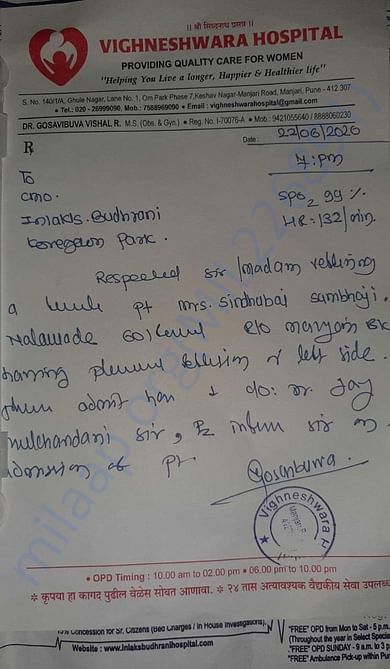 || श्री सिध्दनाथ प्रसन्न ||
VIGHNESHWARA HOSPITAL
PROVIDING QUALITY CARE FOR WOMEN
"Helping You Live a longer, Happier & Healthier life"
S. No. 140/1/A, Ghule Nagar, Lane No. 1, Om Park Phase 7, Keshav Nagar-Manjari Road, Manjari, Pune - 412 307
• Tel.: 020 - 26999090, Mob.: 7568969090 • Email : vighneshwarahospital@gmail.com
DR. GOSAVIBUVA VISHAL R. M.S. (Obs. & Gyn.) • Reg. No. I-70076-A • Mob.: 9421055640 / 8888060230
Date : 22/06/2020
R
7:pm
To
cmo.
SPO2 99 %.
Inlakds. Budhrani
HR=132/min.
Koregaon Park.
Respected sir/madam
a pt mrs. sindhubai sambhaji.
Nalawade 60/
having pleural effusion left side.
admit her Jay
mulchandani sir, Plz inform sir on
admission of pt.
Gosavibuwa.
Vighneshwara
• OPD Timing : 10.00 am to 02.00 pm • 06.00 pm to 10.00 pm
* कृपया हा कागद पुढील वेळेस सोबत आणावा. * २४ तास अत्यावश्यक वैद्यकीय सेवा उपलब्ध
10% Concession for Sr. Citizens (Bed Charges / In House Investigations),
Website : www.inlaksbudhranihospital.com
"FREE" OPD from Mon to Sat - 5 p.m.
(Throughout the year in Select Specia
"FREE" OPD SUNDAY - 9 a.m. to
"FREE" Ambulance Pick-up within Pun
milaap.org